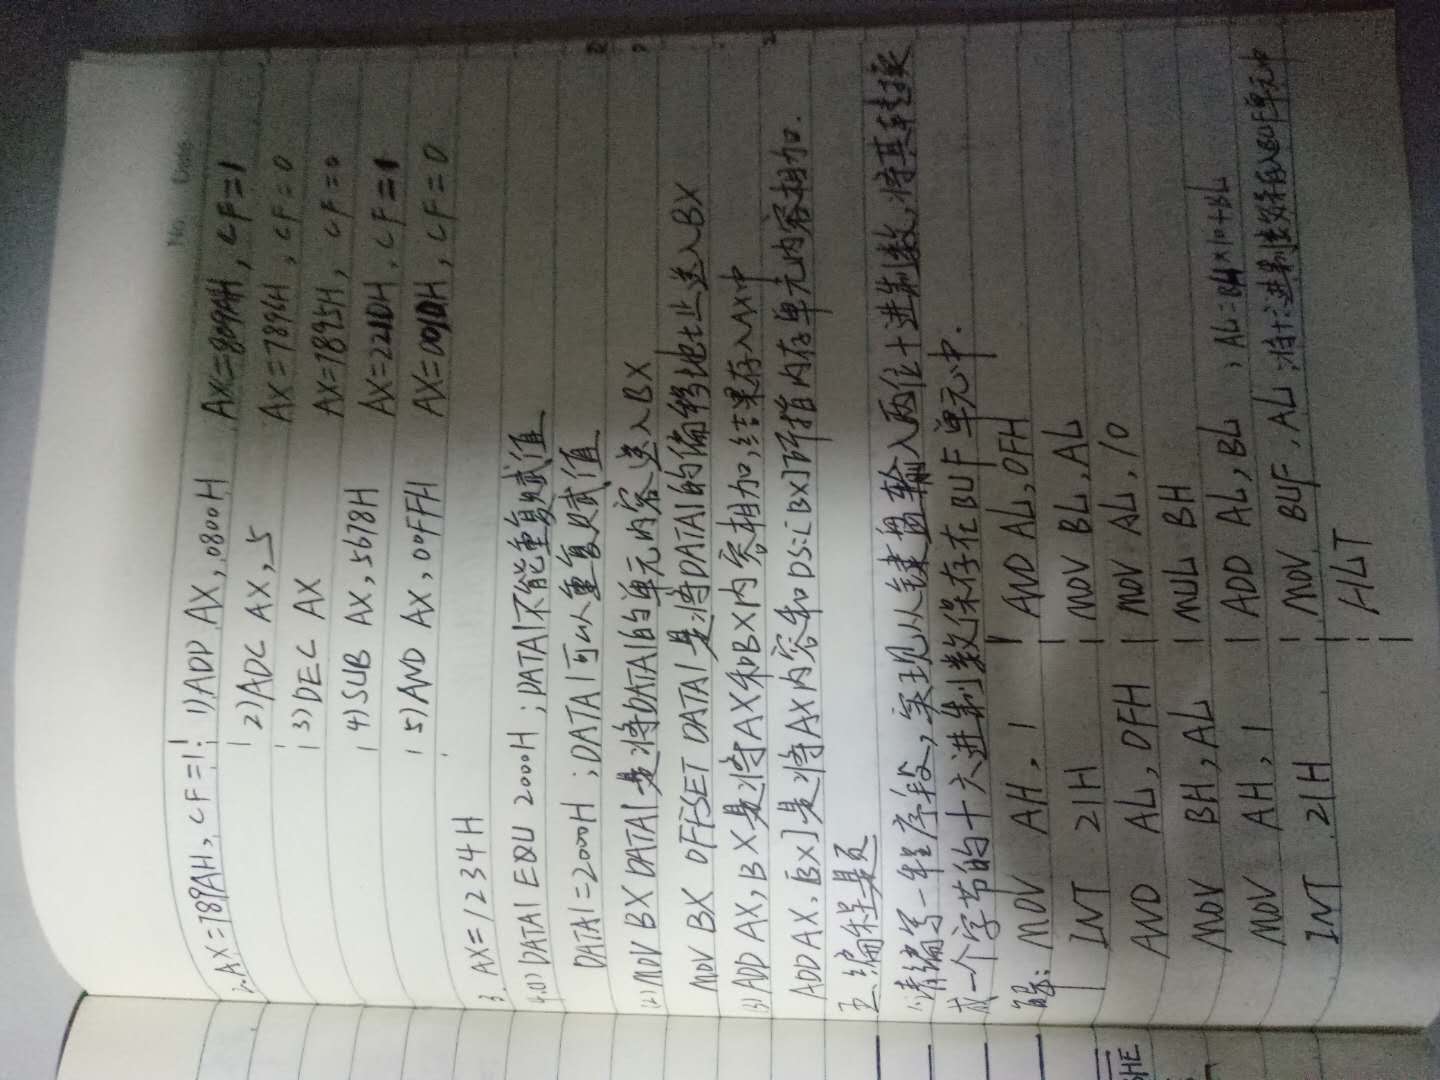 No Date
2.AX=789AH, CF=1: 1)ADD AX,0800H AX=809AH, CF=1
2)ADC AX,5 AX=7896H, CF=0
3)DEC AX AX=7895H, CF=0
4)SUB AX,5678H AX=221DH, CF=1
5)AND AX,00FFH AX=001DH, CF=0
3. AX=1234H
4.(1)DATA1 EQU 2000H ;DATA1不能重复赋值
DATA1=2000H ;DATA1可以重复赋值
(2)MOV BX DATA1是将DATA1的单元内容送入BX
MOV BX OFFSET DATA1是将DATA1的偏移地址送入BX
(3)ADD AX,BX是将AX和BX内容相加,结果存入AX中
ADD AX,[BX]是将AX内容和DS:[BX]所指内存单元内容相加.
五.编程题
1.请编写一程序段,实现从键盘输入两位十进制数,将其转换
成一个字节的十六进制数保存在BUF单元中.
解: MOV AH, 1 AND AL,0FH
INT 21H MOV BL,AL
AND AL,0FH MOV AL,10
MOV BH,AL MUL BH
MOV AH, 1 ADD AL,BL ;AL=BH×10+BL
INT 21H MOV BUF,AL ;将十六进制数保存入BUF单元中
HLT
HE